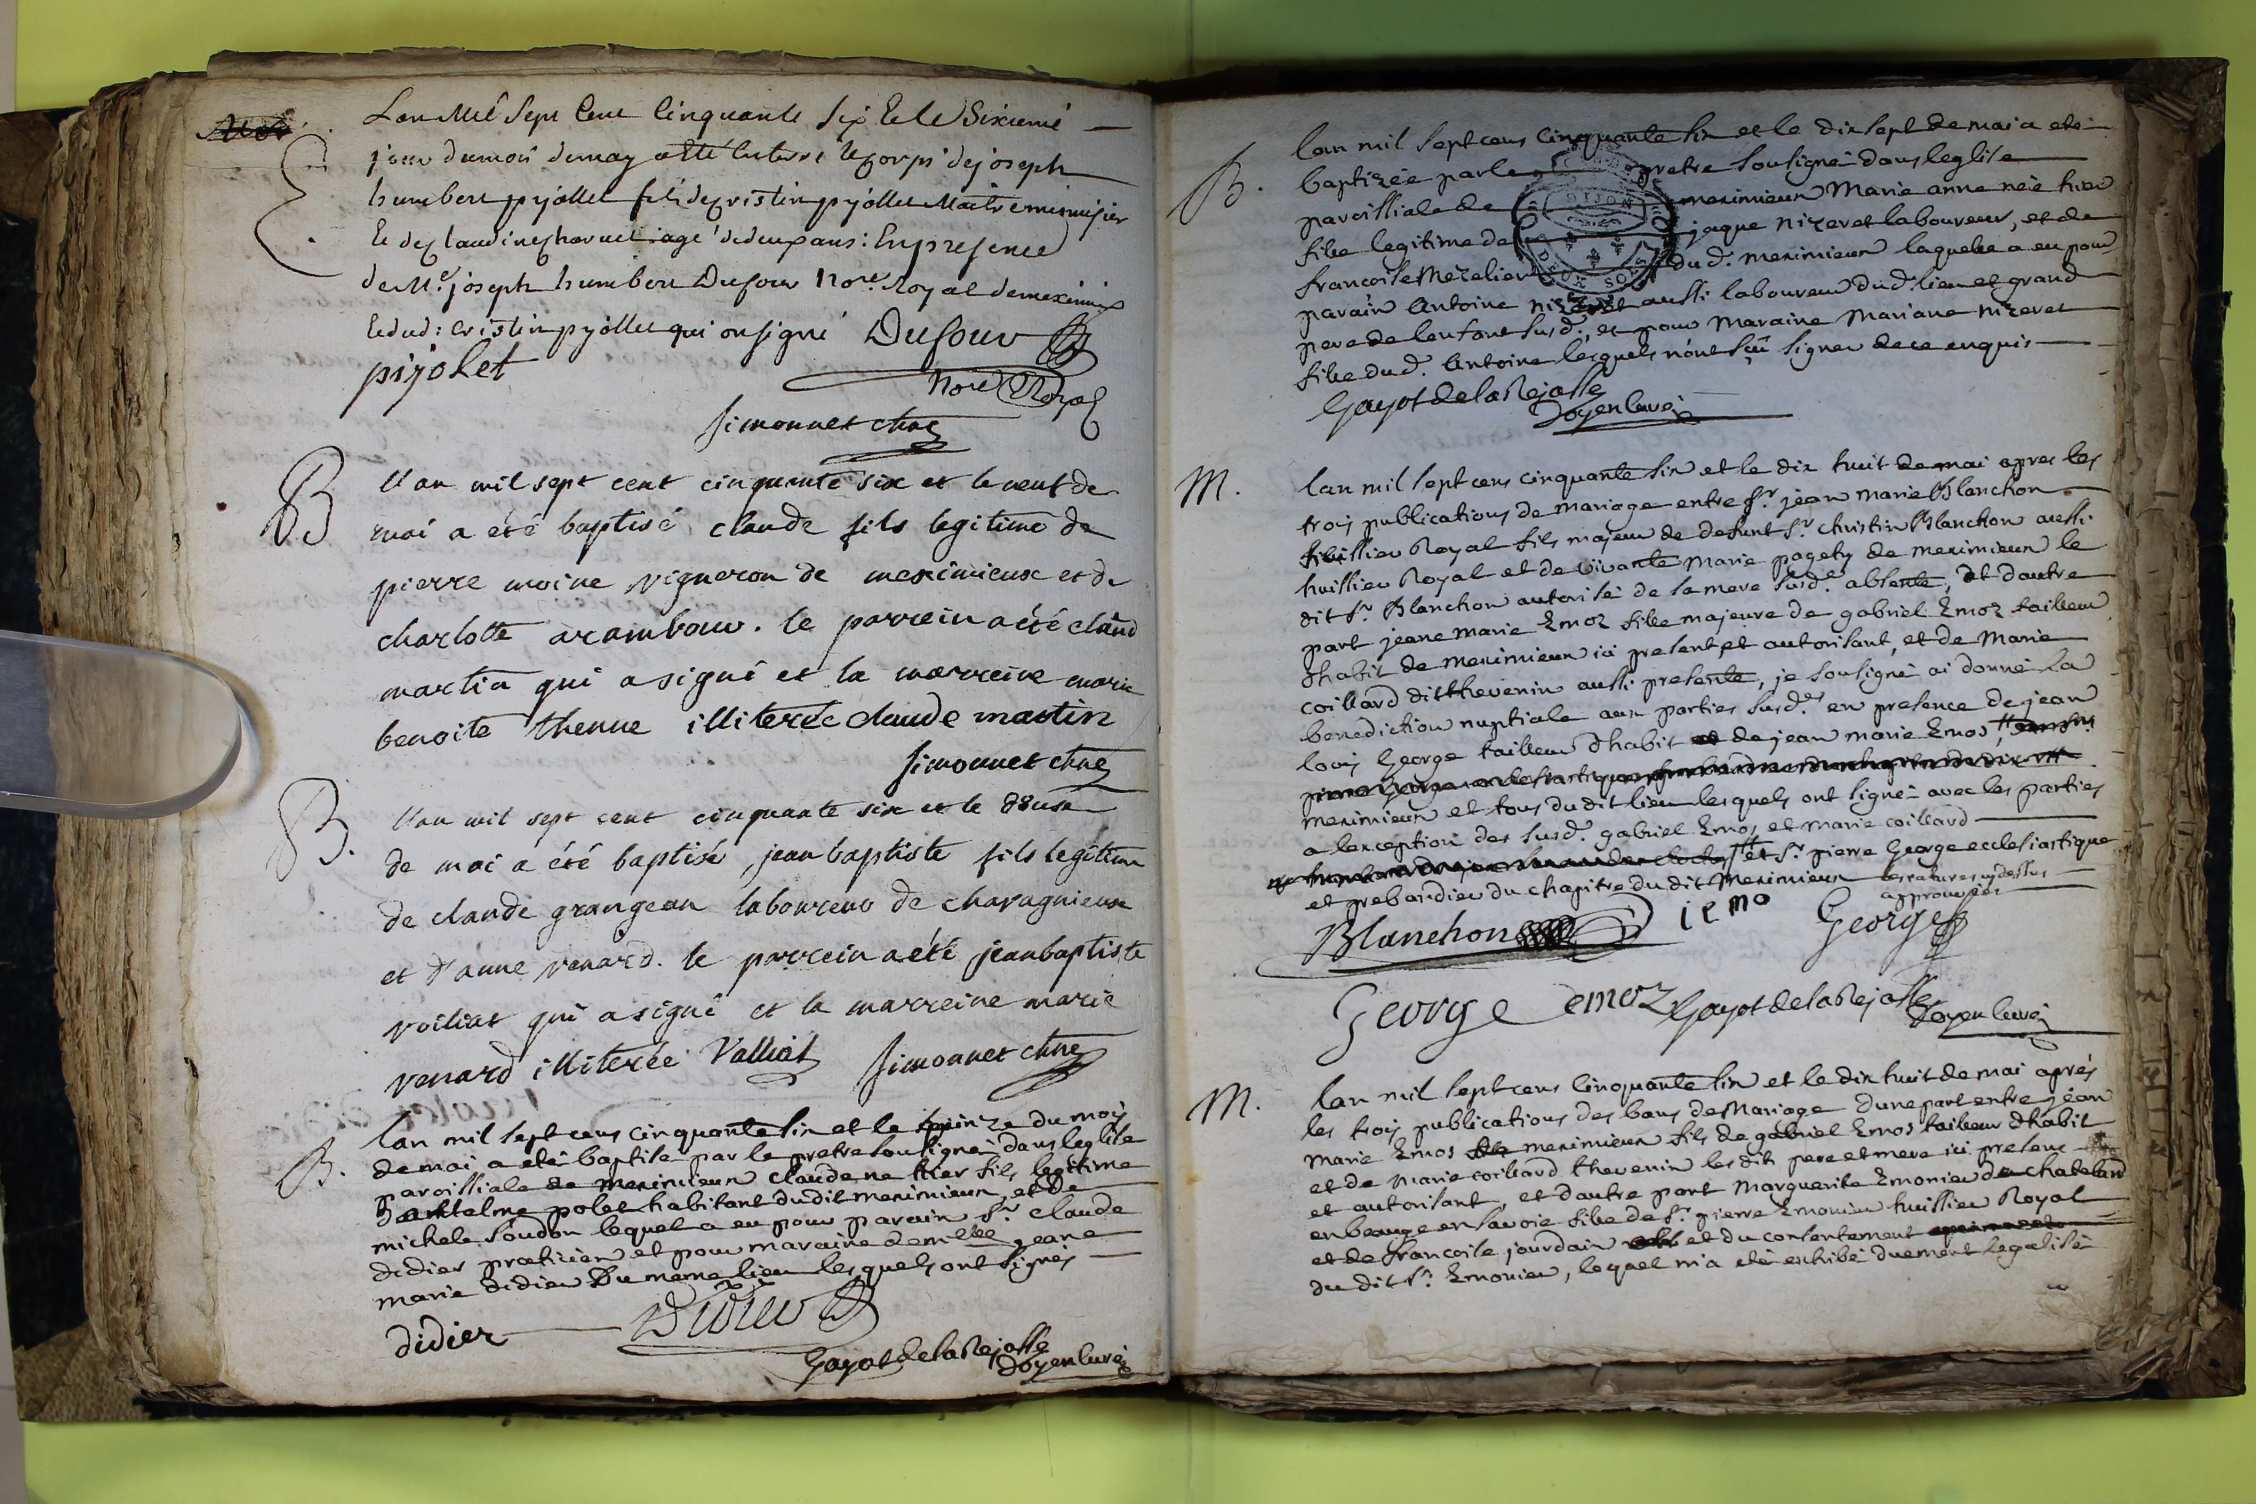 Lan Mil Sept Cent Cinquante Six Et le Sixiemé
jour du mois demay a Eté Enterré le Corps de joseph
humbert pijollet fils de cristin pijollet Maitre menuisier
Et de Claudine charvet agé de deux ans : En presence
de Mr. joseph humbert Dufour Nore. Royal de meximieux
Et dud : cristin pijollet qui on signé Dufour
pijolet
Nore Royal
Simonnet chne
B
L'an mil sept cent cinquante six et le neuf de
mai a été baptisé claude fils legitime de
pierre moine vigneron de meximieux et de
charlotte arambour. le parrein a été claud
martin qui a signé et la marreine marie
benoite thenne illiterée claude martin
Simonnet chne
B.
L'an mil sept cent cinquante six et le douse
de mai a été baptisé, jean baptiste fils legitime
de claude grangean laboureur de charagnieux
et d'anne venard. le parrein a été jean baptiste
voiliat qui a signé et la marreine marie
venard illiterée Valliat Simonnet chne
B.
lan mil sept cens cinquante six et le quinze du mois
de mai a eté baptisé par le pretre sousigné dans leglise
paroissiale de meximieux claude ne hier fils legitime
Danthelme polet habitant dudit meximieux, et de
michele soudon lequel a eu pour parain sr. claude
didier praticien et pour maraine demlle jeane
marie didier Du meme lieu lesquels ont signés
didier Didier
Gayot de la Rejasse
Doyen curé
B.
lan mil sept cens cinquante six et le dix sept de mai a eté
baptizée par le pretre sousigné dans leglise
paroissiale de meximieux Marie anne née hier
fille legitime de jaque nizeret laboureur, et de
francoise Mezelier du d. meximieux laquelle a eu pour
parain Antoine nizeret aussi laboureur dud. lieu et grand
pere de lenfant susd., et pour Maraine Mariane nizeret
fille du d. Antoine lesquels n'ont sçû signer de ce enquis
Gayot de la Rejasse
Doyen curé
M.
lan mil sept cens cinquante six et le dix huit de mai apres les
trois publications de mariage entre sr. jean marie Blanchon
huissier Royal fils majeur de defunt sr. christin Blanchon aussi
huissier Royal et de vivante Marie pagety de meximieux le
dit sr. Blanchon autorisé de sa mere susde. absente, et dautre
part jeane marie Emoz fille majeure de gabriel Emoz tailleur
dhabit de meximieux ici present et autorisant, et de Marie
coillard dit thevenin aussi presente, je sousigné ai donné la
benediction nuptiale aux parties susdes. en presence de jean
louis George tailleur dhabit de jean marie Emos
meximieux et tous du dit lieu lesquels ont signé avec les parties
a lexception des susd. gabriel Emos et marie coillard
et sr. pierre George ecclesiastique
et prebandier du chapitre du dit Meximieux les ratures cy dessus
approuvées
Blanchon jemo George
George Emoz Gayot de la Rejasse
Doyen curé
M.
lan mil sept cens cinquante six et le dix huit de mai aprés
les trois publications des bans de Mariage dune part entre jean
Marie Emos de meximieux fils de gabriel Emos tailleur dhabit
et de Marie coillard thevenin les dits pere et mere ici presens
et autorisant, et dautre part Marguerite Emonier de chateland
en beauge en savoie fille de sr. pierre Emonier huissier Royal
et de francoise jourdain et du consentement
du dit sr. Emonier, lequel m'a eté exhibé duement legalisé